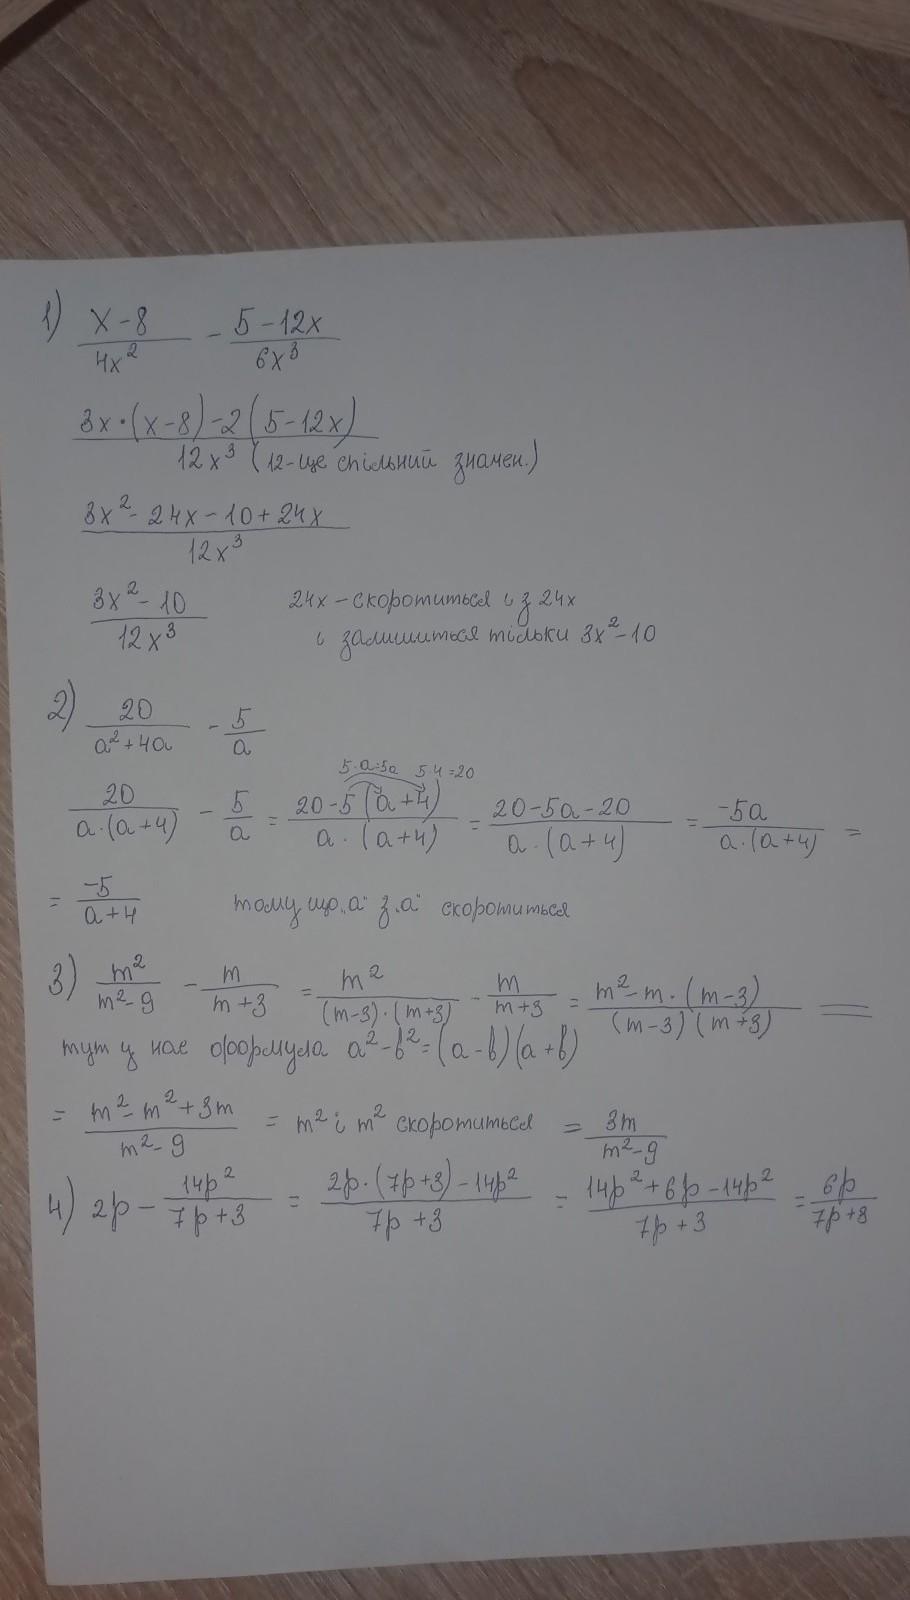 1) (x-8)/(4x²) - (5-12x)/(6x³)
(3x·(x-8)-2(5-12x))/(12x³) (12-це спільний знамен.)
(3x²-24x-10+24x)/(12x³)
(3x²-10)/(12x³) 24x-скоротиться із 24x
і залишиться тільки 3x²-10
2) 20/(a²+4a) - 5/a
5·a=5a 5·4=20
20/(a·(a+4)) - 5/a = (20-5(a+4))/(a·(a+4)) = (20-5a-20)/(a·(a+4)) = (-5a)/(a·(a+4)) =
= (-5)/(a+4) тому що „a" з „a" скоротиться
3) m²/(m²-9) - m/(m+3) = m²/((m-3)·(m+3)) - m/(m+3) = (m²-m·(m-3))/((m-3)(m+3)) =
тут у нас формула a²-b²=(a-b)(a+b)
= (m²-m²+3m)/(m²-9) = m² і m² скоротиться = 3m/(m²-9)
4) 2p - 14p²/(7p+3) = (2p·(7p+3)-14p²)/(7p+3) = (14p²+6p-14p²)/(7p+3) = 6p/(7p+3)